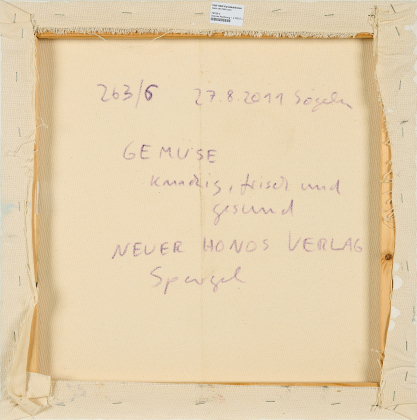 263/6 27.8.2011 Sögeln
GEMÜSE
knackig, frisch und
gesund
NEUER HONOS VERLAG
Spargel